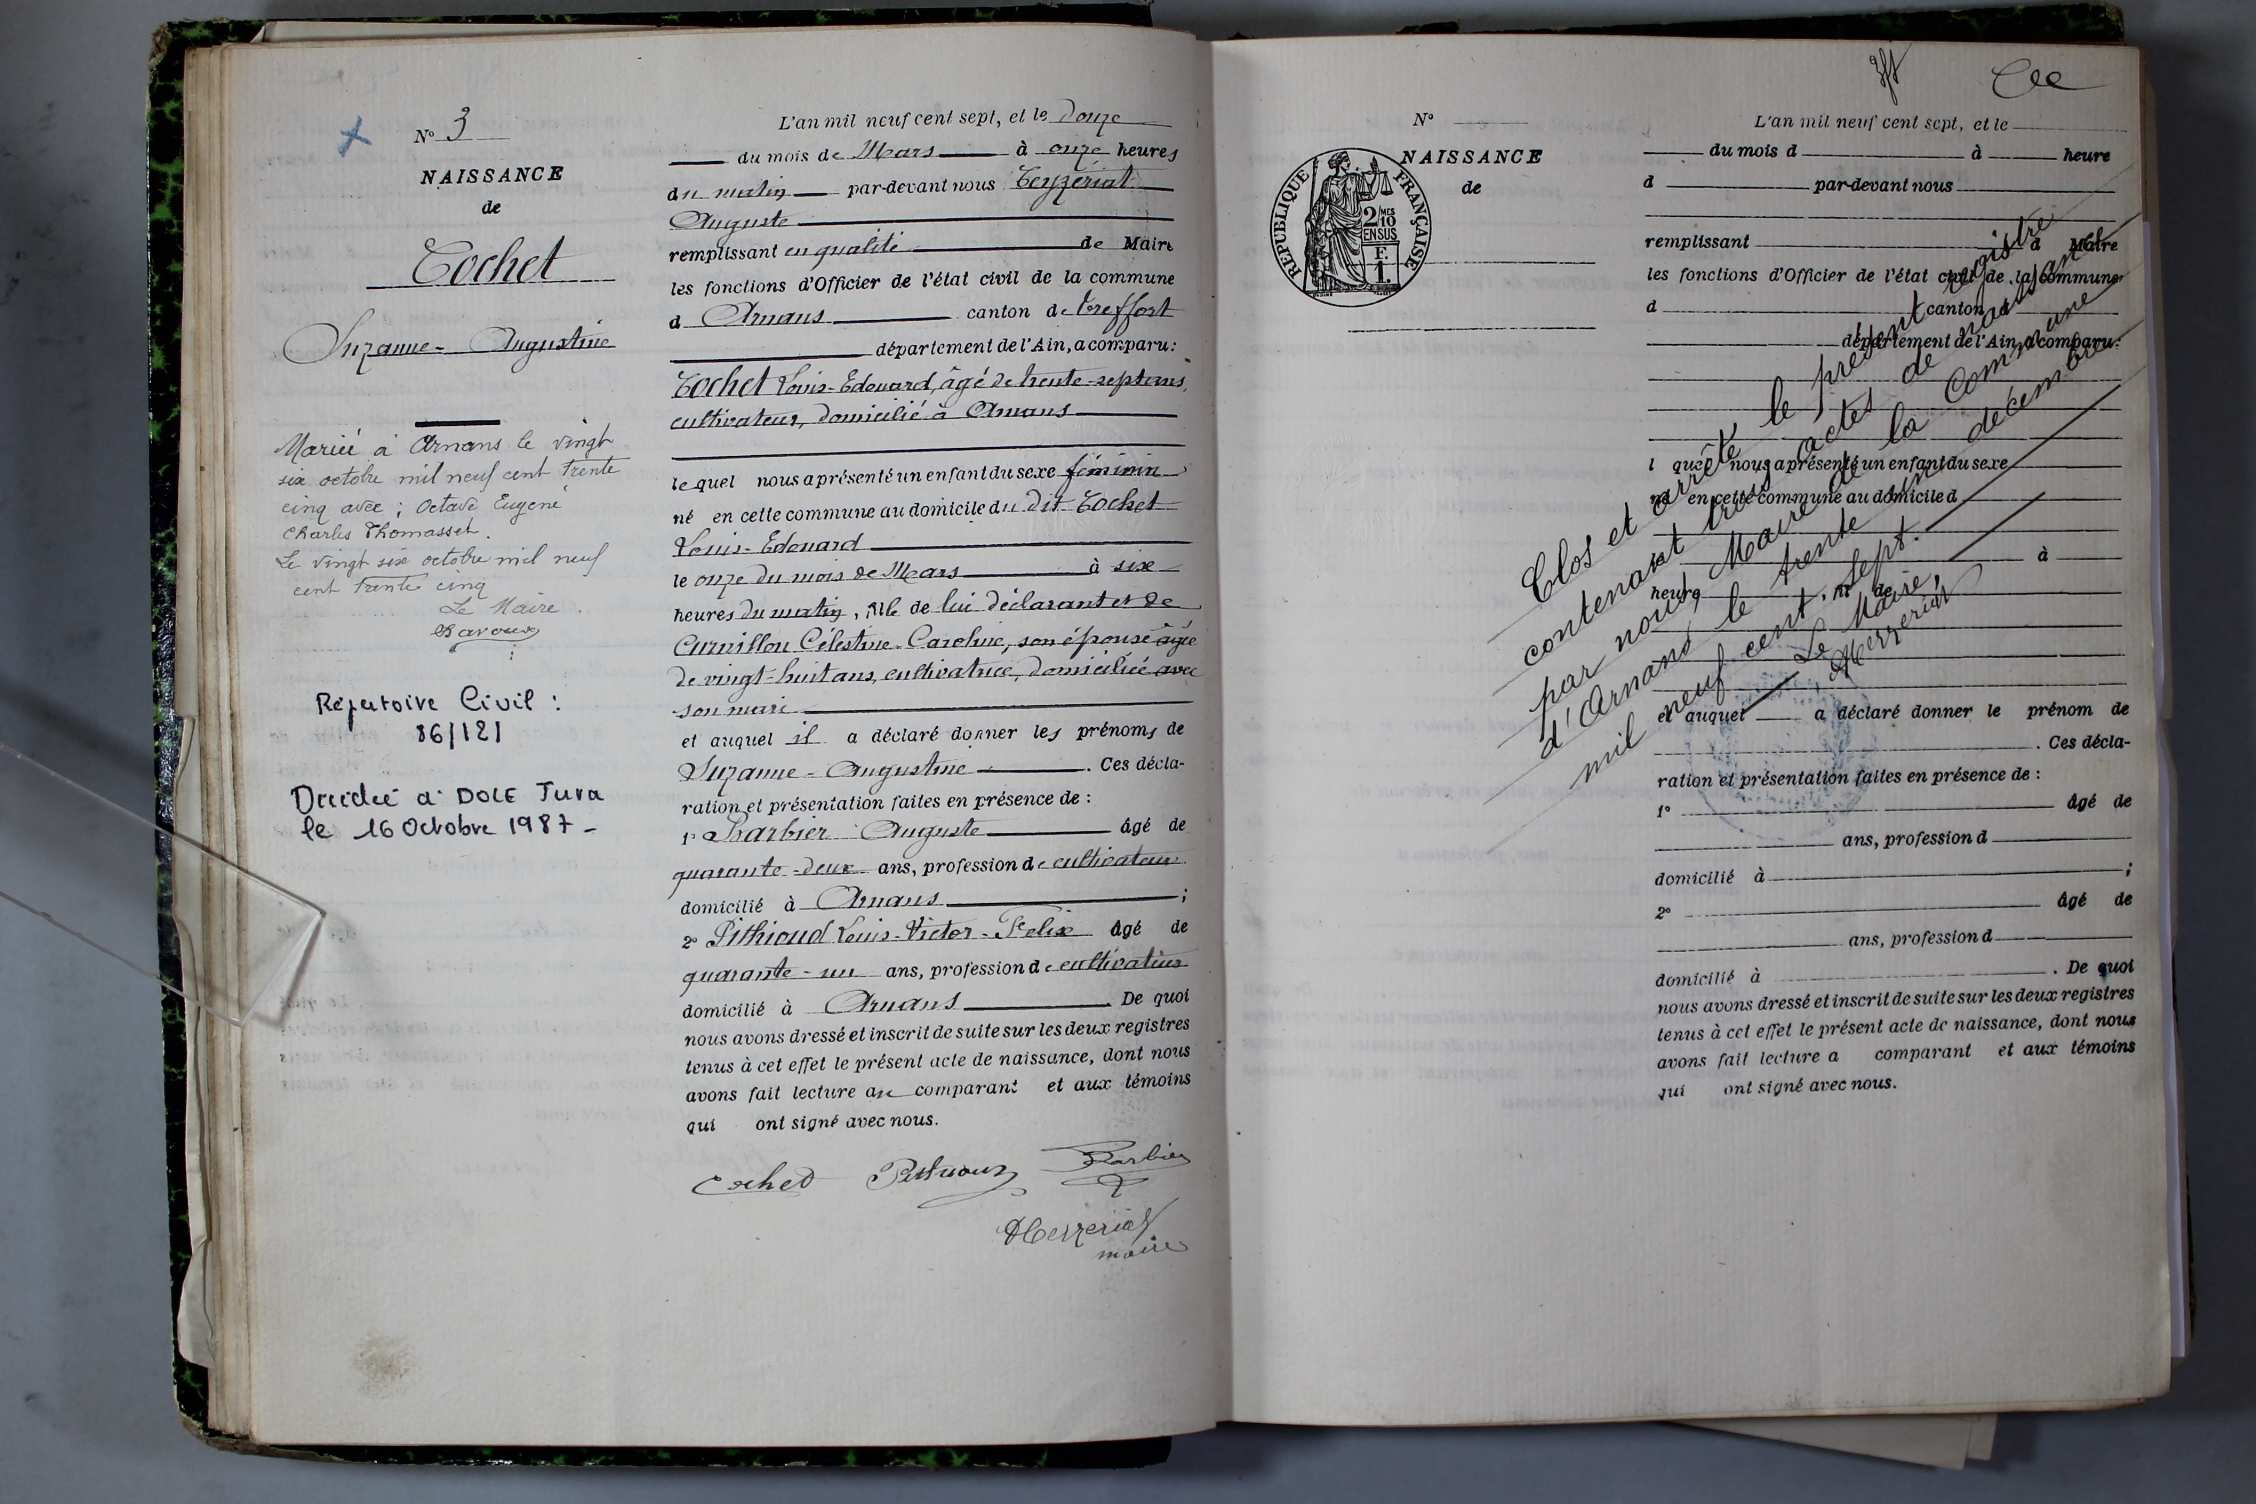 N° 3
NAISSANCE
de
Cochet
Suzanne - Augustine
Mariée à Arnans le vingt
six octobre mil neuf cent trente
cinq avec ; Octave Eugène
Charles Thomasset.
Le vingt six octobre mil neuf
cent trente cinq
Le Maire.
Répertoire Civil :
86/121
Décédée à DOLE Jura
le 16 Octobre 1987 -
L'an mil neuf cent sept, et le douze
du mois de Mars à onze heures
du matin par-devant nous Teyzériat
Auguste
remplissant en qualité de Maire
les fonctions d'Officier de l'état civil de la commune
d Arnans canton de Treffort
département de l'Ain, a comparu :
Cochet Louis-Edouard, âgé de trente-sept ans,
cultivateur, domicilié à Arnans
lequel nous a présenté un enfant du sexe féminin
né en cette commune au domicile du dit Cochet
Louis-Edouard
le onze du mois de Mars à six
heures du matin, fille de lui déclarant et de
Curvillon Célestine-Caroline, son épouse âgée
de vingt-huit ans, cultivatrice, domiciliée avec
son mari
et auquel il a déclaré donner les prénoms de
Suzanne - Augustine . Ces décla-
ration et présentation faites en présence de :
1° Barbier Auguste âgé de
quarante-deux ans, profession de cultivateur
domicilié à Arnans ;
2° Pithioud Louis-Victor-Félix âgé de
quarante-un ans, profession de cultivateur
domicilié à Arnans De quoi
nous avons dressé et inscrit de suite sur les deux registres
tenus à cet effet le présent acte de naissance, dont nous
avons fait lecture au comparant et aux témoins
qui ont signé avec nous.
Cochet Pithioud Barbier
Teyzeriat
maire
N°
NAISSANCE
de
RÉPUBLIQUE FRANÇAISE
2 MES
10
EN SUS
F.
1
L'an mil neuf cent sept, et le
du mois d à heure
d par-devant nous
remplissant d Maire
les fonctions d'Officier de l'état civil de la commune
d canton d
département de l'Ain, a comparu :
l quel nous a présenté un enfant du sexe
né en cette commune au domicile d
à
heure , fil de
et auquel a déclaré donner le prénom de
. Ces décla-
ration et présentation faites en présence de :
1° âgé de
ans, profession d
domicilié à ;
2° âgé de
ans, profession d
domicilié à . De quoi
nous avons dressé et inscrit de suite sur les deux registres
tenus à cet effet le présent acte de naissance, dont nous
avons fait lecture a comparant et aux témoins
qui ont signé avec nous.
Clos et arrêté le présent registre
contenant trois actes de naissance
par nous, Maire de la Commune
d'Arnans le trente un décembre
mil neuf cent sept.
Le Maire,
Teyzeriat